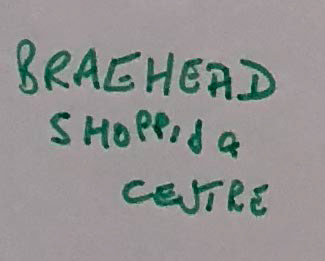 BRAEHEAD
SHOPPING
CENTRE